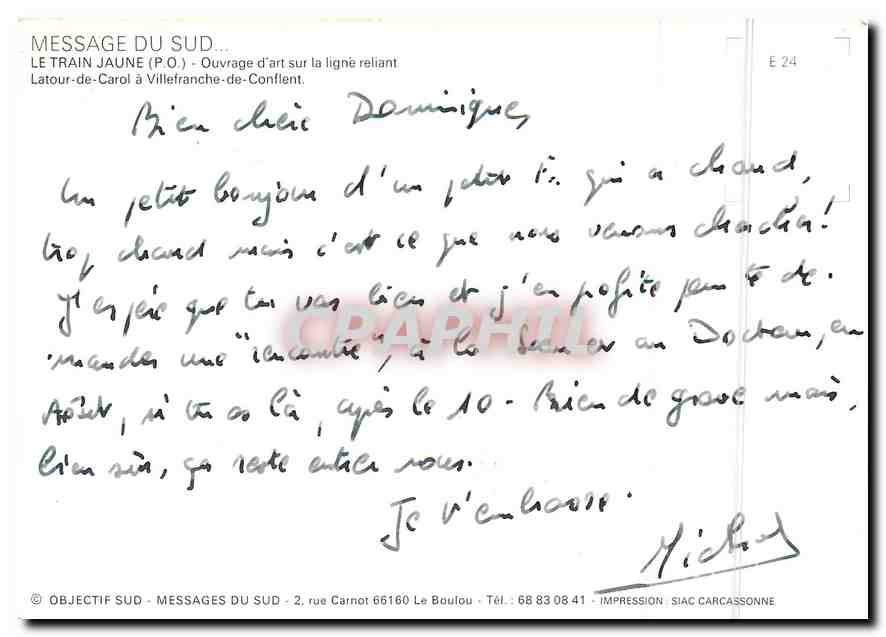 MESSAGE DU SUD...
LE TRAIN JAUNE (P.O.) - Ouvrage d'art sur la ligne reliant
Latour-de-Carol à Villefranche-de-Conflent.
E 24
Bien chère Dominique,
Un petit bonjour d'un petit qui a chaud,
trop chaud mais c'est ce que nous venons chercher!
J'espère que tu vas bien et j'en profite pour te de-
mander une "rencontre", à la au Docteur, en
Août, si tu es là, après le 10 - Rien de grave mais,
bien sûr, ça reste entre nous.
Je t'embrasse.
Michel
CPAPHIL
© OBJECTIF SUD - MESSAGES DU SUD - 2, rue Carnot 66160 Le Boulou - Tél. : 68 83 08 41 - IMPRESSION : SIAC CARCASSONNE